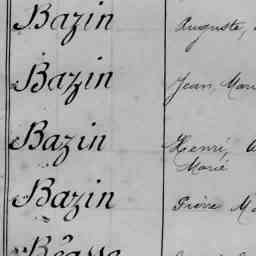 Bazin Auguste,
Bazin Jean, Mari
Bazin Henri,
Marie
Bazin Pierre Ma